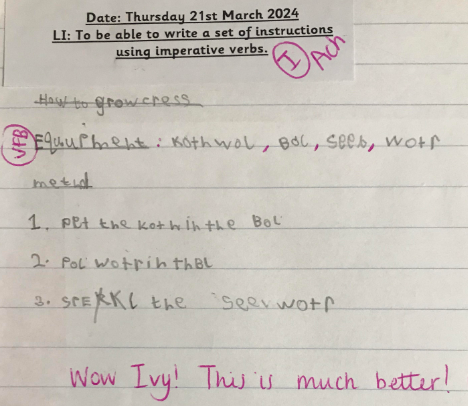 Date: Thursday 21st March 2024
LI: To be able to write a set of instructions
using imperative verbs.
I Ach
How to grow cress
VFB Equurment: kothwol, BOL, seeb, wotr
metid
1. pet the koth in the BOL
2. POL wotr in thBL
3. SPEKKL the seer wotr
Wow Ivy! This is much better!